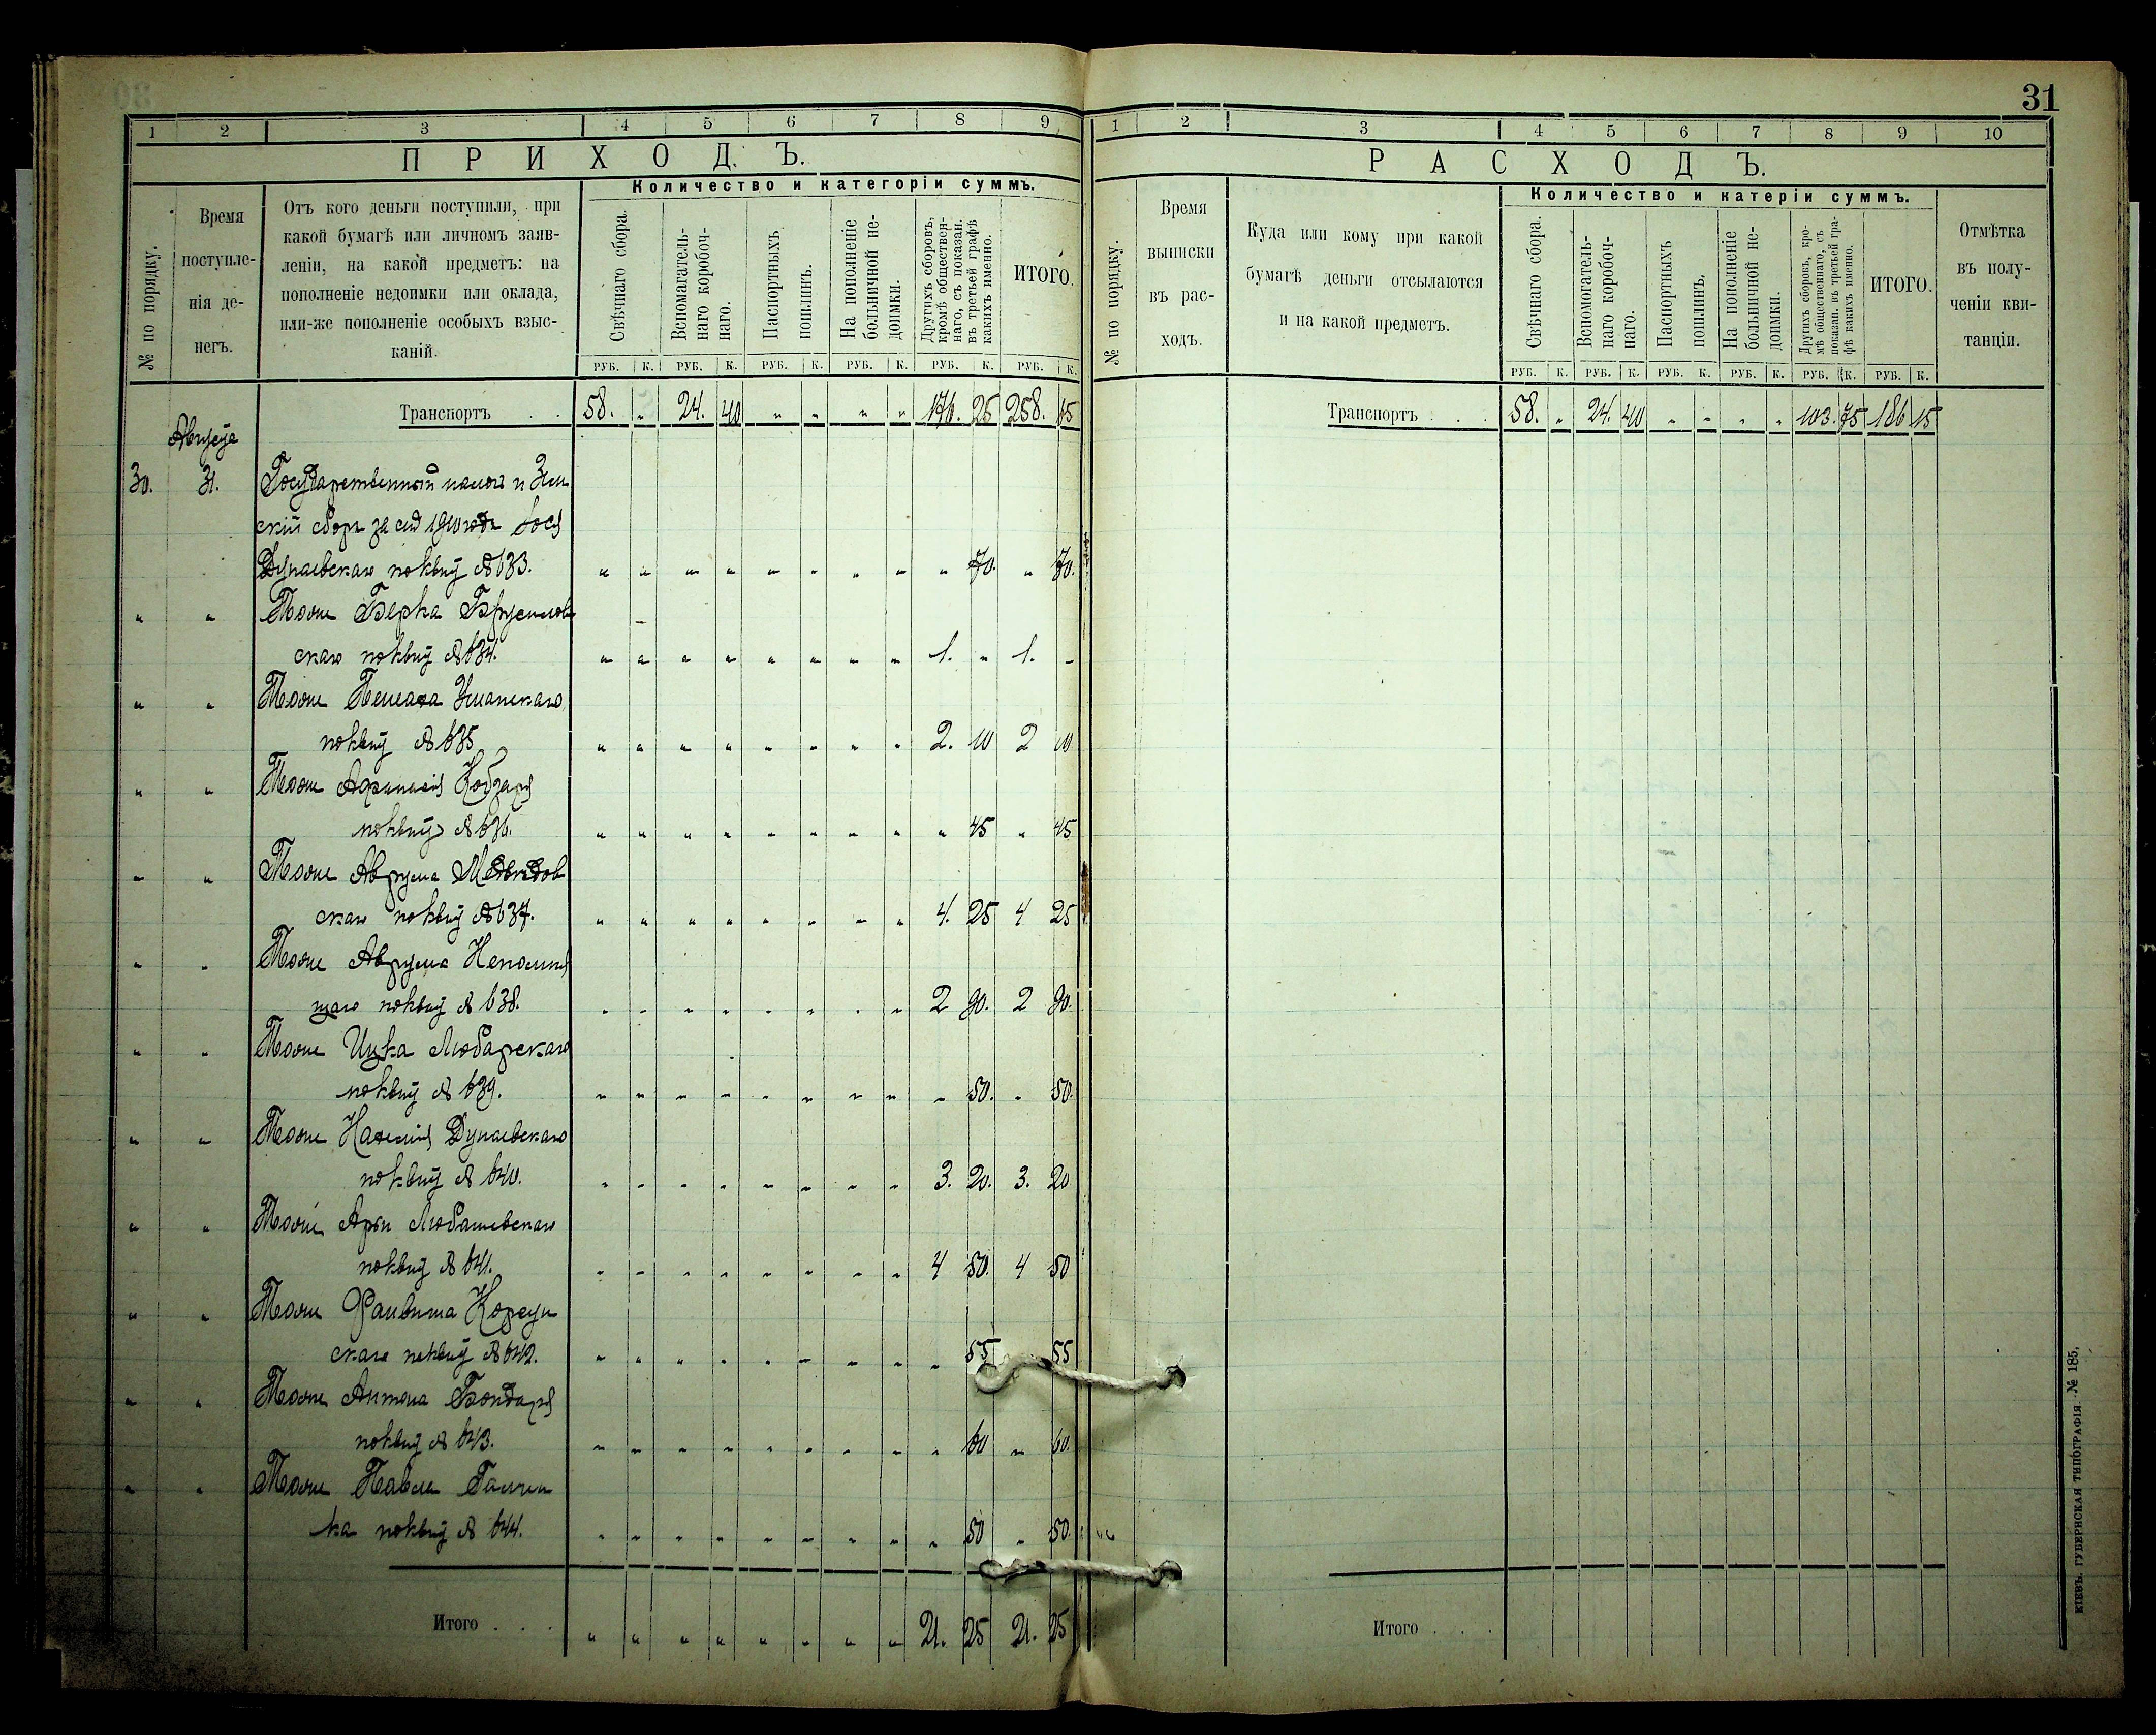 31
1 2 3 4 5 6 7 8 9
ПРИХОДЪ.
Количество и категоріи суммъ.
№ по порядку.
Время
поступле-
нія де-
негъ.
Отъ кого деньги поступили, при
какой бумагѣ или личномъ заяв-
леніи, на какой предметъ: на
пополненіе недоимки или оклада,
или-же пополненіе особыхъ взыс-
каній.
Свѣчнаго сбора.
Вспомогатель-
наго коробоч-
наго.
Паспортныхъ
пошлинъ.
На пополненіе
больничной не-
доимки.
Другихъ сборовъ,
кромѣ обществен-
наго, съ показан.
въ третьей графѣ
какихъ именно.
ИТОГО.
РУБ. К. РУБ. К. РУБ. К. РУБ. К. РУБ. К. РУБ. К.
Транспортъ . . 58. „ 24. 40 „ „ „ „ 176. 25 258. 65
Августа
30. 31. Государственный налогъ и Зем
скій сборъ за 1910 годъ
Дунаевскаго по квит № 633. „ „ „ „ „ „ „ „ „ 70. „ 70.
„ „ Тоже Берка Брусилов
скаго по квит № 634. „ „ „ „ „ „ „ „ 1. „ 1. „
„ „ Тоже Уманскаго
по квит № 635 „ „ „ „ „ „ „ „ 2. 10 2 10
„ „ Тоже Афанасія Кобзаря
по квит № 636. „ „ „ „ „ „ „ „ „ 45 „ 45
„ „ Тоже Аврума Медвѣдов
скаго по квит № 637. „ „ „ „ „ „ „ „ 4. 25 4 25
„ „ Тоже Аврума Непомня
щаго по квит № 638. „ „ „ „ „ „ „ „ 2 90. 2 90.
„ „ Тоже Ицка Любарскаго
по квит № 639. „ „ „ „ „ „ „ „ „ 50. „ 50.
„ „ Тоже Дунаевскаго
по квит № 640. „ „ „ „ „ „ „ „ 3. 20. 3. 20
„ „ Тоже Арьи Любашевскаго
по квит № 641. „ „ „ „ „ „ „ „ 4 50. 4 50
„ „ Тоже Фаивиша Корсун
скаго по квит № 642. „ „ „ „ „ „ „ „ „ 55 55
„ „ Тоже Антона Бондаря
по квит № 643. „ „ „ „ „ „ „ „ „ 60 „ 60.
„ „ Тоже Павла
ка по квит № 644. „ „ „ „ „ „ „ „ „ 50 „ 50.
Итого . . . „ „ „ „ „ „ „ „ 21. 25 21. 25
1 2 3 4 5 6 7 8 9 10
РАСХОДЪ.
Количество и катеріи суммъ.
№ по порядку.
Время
выписки
въ рас-
ходъ.
Куда или кому при какой
бумагѣ деньги отсылаются
и на какой предметъ.
Свѣчнаго сбора.
Вспомогатель-
наго коробоч-
наго.
Паспортныхъ
пошлинъ.
На пополненіе
больничной не-
доимки.
Другихъ сборовъ, кро-
мѣ общественнаго, съ
показан. въ третьей гра-
фѣ какихъ именно.
ИТОГО.
Отмѣтка
въ полу-
ченіи кви-
танціи.
РУБ. К. РУБ. К. РУБ. К. РУБ. К. РУБ. К. РУБ. К.
Транспортъ . . . 58. „ 24. 40 „ „ „ „ 103. 75 186 15
Итого . . .
КІЕВЪ. ГУБЕРНСКАЯ ТИПОГРАФІЯ № 185.